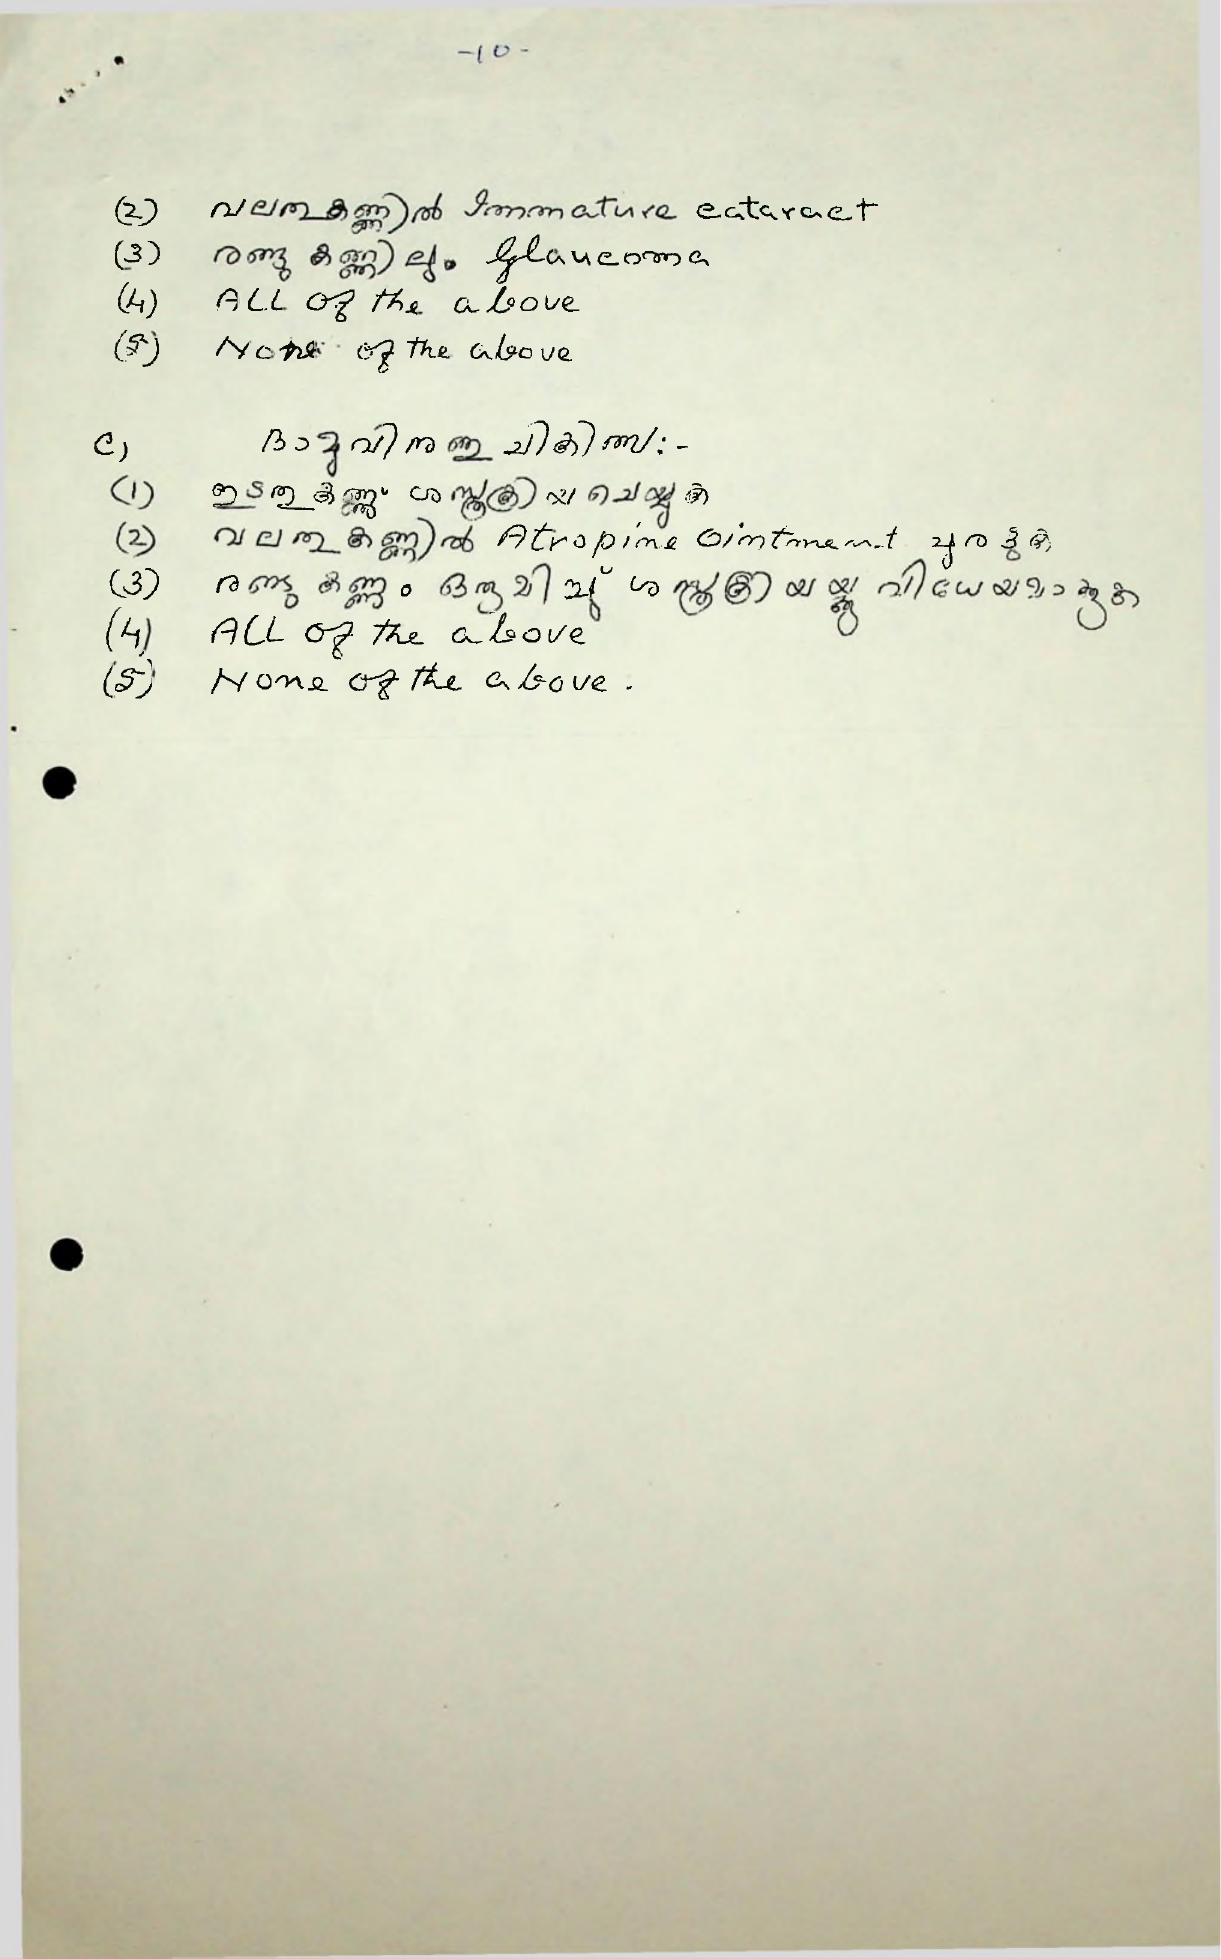 -10-
(2) വലതുകണ്ണിൽ Immature cataract
(3) രണ്ടു കണ്ണിലും Glaucoma
(4) ALL of the above
(5) None of the above
C) ചികിത്സ:-
(1) ഇടതുകണ്ണു ശസ്ത്രക്രിയ ചെയ്യുക
(2) വലതുകണ്ണിൽ Atropine Ointment പുരട്ടുക
(3) രണ്ടു കണ്ണും ഒരുമിച്ച് ശസ്ത്രക്രിയയ്ക്കു വിധേയമാക്കുക
(4) ALL of the above
(5) None of the above.